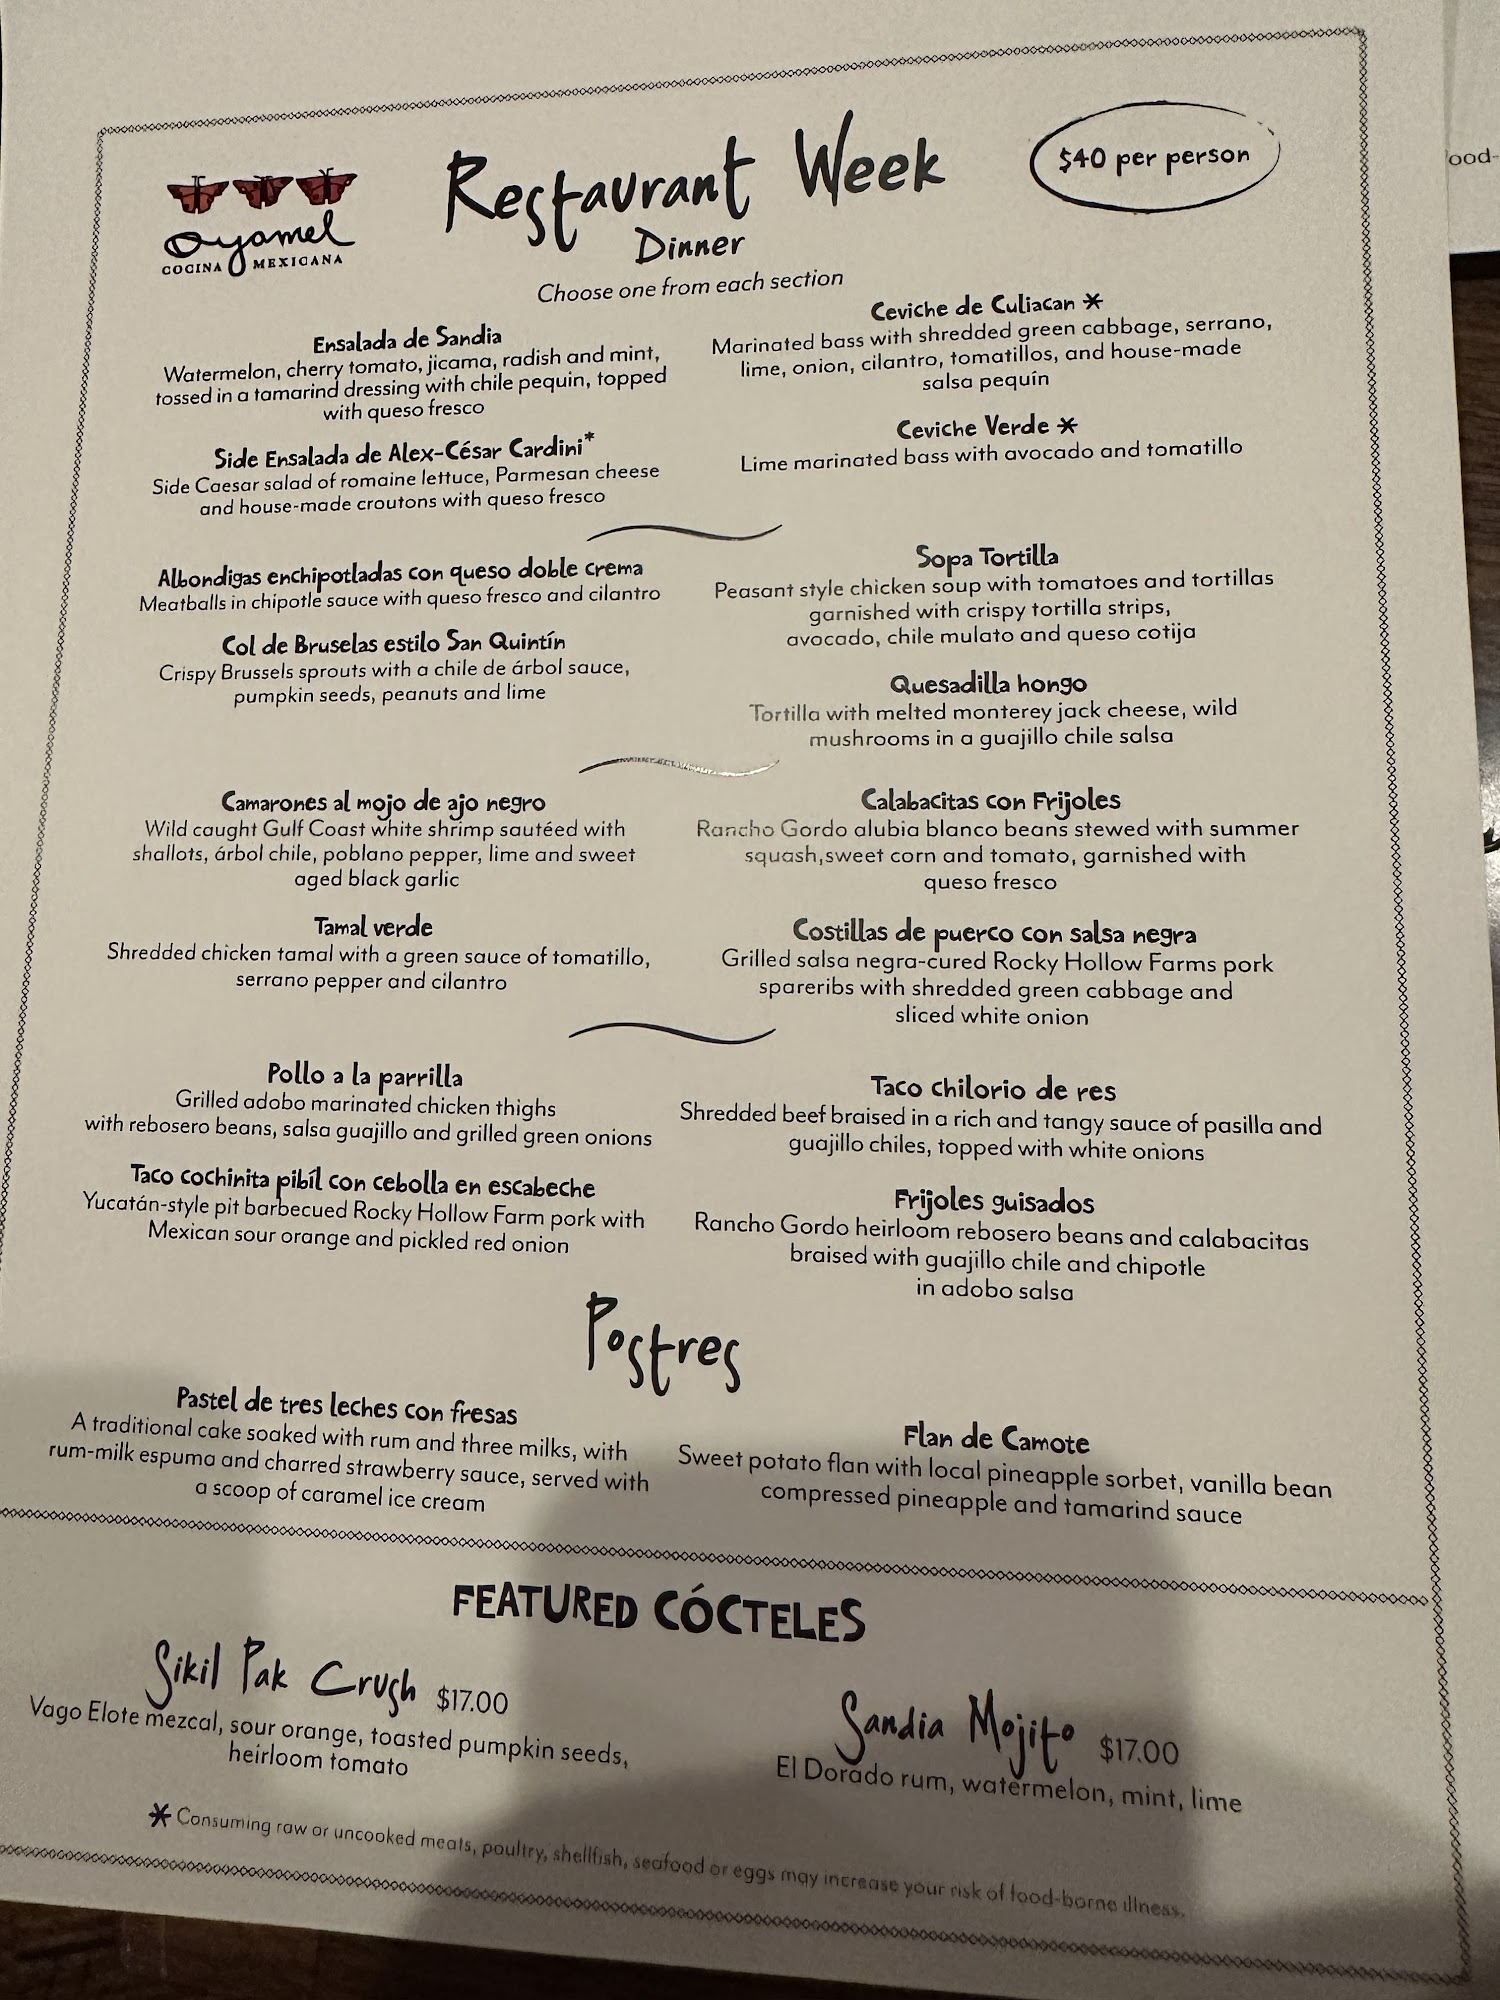 Oyamel
COCINA MEXICANA
Restaurant Week
Dinner
$40 per person
Choose one from each section
Ensalada de Sandia
Watermelon, cherry tomato, jicama, radish and mint,
tossed in a tamarind dressing with chile pequin, topped
with queso fresco
Side Ensalada de Alex-César Cardini*
Side Caesar salad of romaine lettuce, Parmesan cheese
and house-made croutons with queso fresco
Ceviche de Culiacan *
Marinated bass with shredded green cabbage, serrano,
lime, onion, cilantro, tomatillos, and house-made
salsa pequín
Ceviche Verde *
Lime marinated bass with avocado and tomatillo
Albondigas enchipotladas con queso doble crema
Meatballs in chipotle sauce with queso fresco and cilantro
Col de Bruselas estilo San Quintín
Crispy Brussels sprouts with a chile de árbol sauce,
pumpkin seeds, peanuts and lime
Sopa Tortilla
Peasant style chicken soup with tomatoes and tortillas
garnished with crispy tortilla strips,
avocado, chile mulato and queso cotija
Quesadilla hongo
Tortilla with melted monterey jack cheese, wild
mushrooms in a guajillo chile salsa
Camarones al mojo de ajo negro
Wild caught Gulf Coast white shrimp sautéed with
shallots, árbol chile, poblano pepper, lime and sweet
aged black garlic
Tamal verde
Shredded chicken tamal with a green sauce of tomatillo,
serrano pepper and cilantro
Calabacitas con Frijoles
Rancho Gordo alubia blanco beans stewed with summer
squash,sweet corn and tomato, garnished with
queso fresco
Costillas de puerco con salsa negra
Grilled salsa negra-cured Rocky Hollow Farms pork
spareribs with shredded green cabbage and
sliced white onion
Pollo a la parrilla
Grilled adobo marinated chicken thighs
with rebosero beans, salsa guajillo and grilled green onions
Taco cochinita pibíl con cebolla en escabeche
Yucatán-style pit barbecued Rocky Hollow Farm pork with
Mexican sour orange and pickled red onion
Taco chilorio de res
Shredded beef braised in a rich and tangy sauce of pasilla and
guajillo chiles, topped with white onions
Frijoles guisados
Rancho Gordo heirloom rebosero beans and calabacitas
braised with guajillo chile and chipotle
in adobo salsa
Postres
Pastel de tres leches con fresas
A traditional cake soaked with rum and three milks, with
rum-milk espuma and charred strawberry sauce, served with
a scoop of caramel ice cream
Flan de Camote
Sweet potato flan with local pineapple sorbet, vanilla bean
compressed pineapple and tamarind sauce
FEATURED CÓCTELES
Sikil Pak Crush $17.00
Vago Elote mezcal, sour orange, toasted pumpkin seeds,
heirloom tomato
Sandia Mojito $17.00
El Dorado rum, watermelon, mint, lime
* Consuming raw or uncooked meats, poultry, shellfish, seafood or eggs may increase your risk of food-borne illness.
ood-